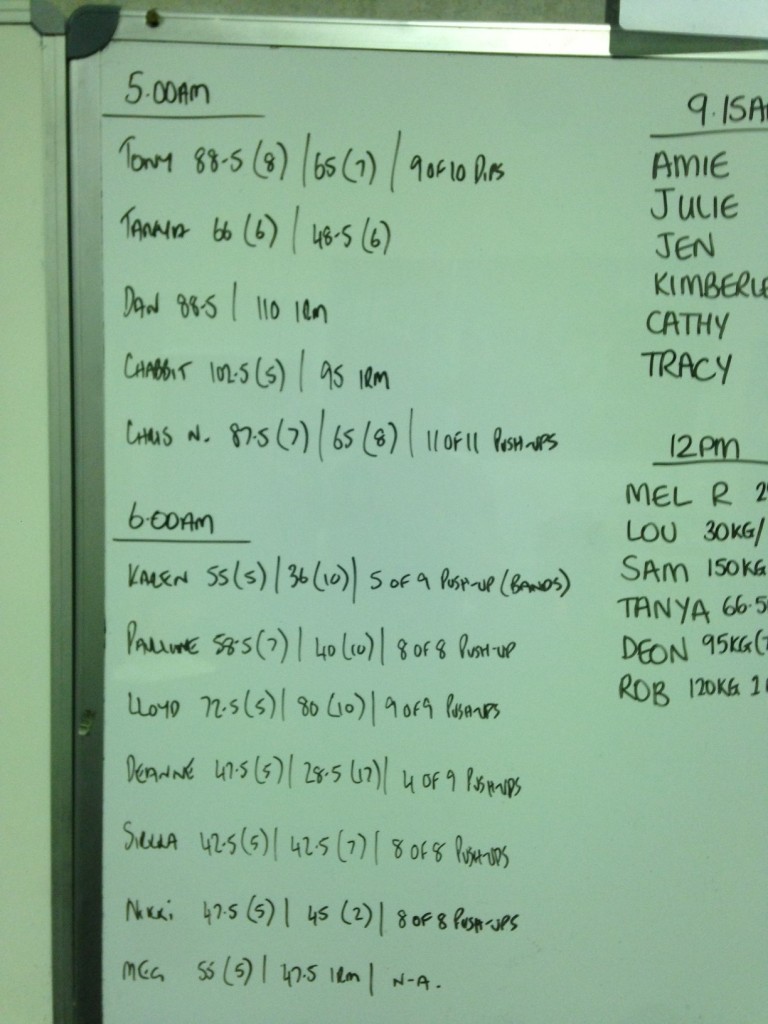 5.00AM
TONY 88.5 (8) | 65 (7) | 9 OF 10 DIPS
TANYA 66 (6) | 48.5 (6)
DAN 88.5 | 110 1RM
CHABBIT 102.5 (5) | 95 1RM
CHRIS N. 87.5 (7) | 65 (8) | 11 OF 11 PUSH-UPS
6.00AM
KAREN 55 (5) | 36 (10) | 5 OF 9 PUSH-UP (BANDS)
PAULINE 58.5 (7) | 40 (10) | 8 OF 8 PUSH-UP
LLOYD 72.5 (5) | 80 (10) | 9 OF 9 PUSH-UPS
DEANNE 47.5 (5) | 28.5 (17) | 4 OF 9 PUSH-UPS
42.5 (5) | 42.5 (7) | 8 OF 8 PUSH-UPS
NIKKI 47.5 (5) | 45 (2) | 8 OF 8 PUSH-UPS
MEG 55 (5) | 47.5 1RM | N-A.
9.15A
AMIE
JULIE
JEN
KIMBERLE
CATHY
TRACY
12PM
MEL R 2
LOU 30KG/
SAM 150KG
TANYA 66.5
DEON 95KG(
ROB 120KG